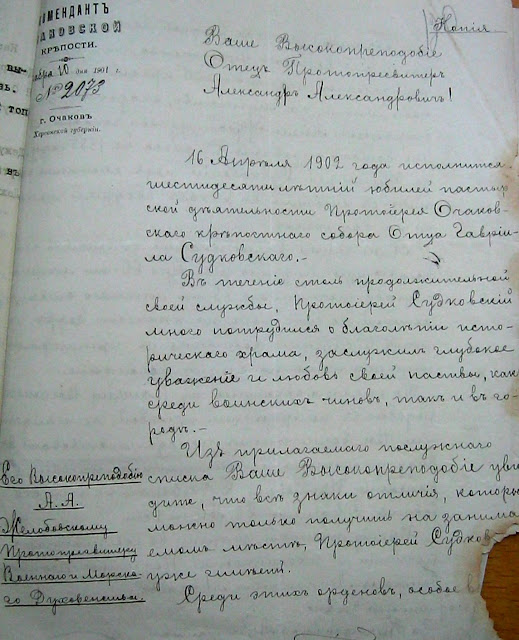 Копія
КОМЕНДАНТЪ
ОЧАКОВСКОЙ
КРѢПОСТИ.
10 дня 1901 г.
№ 2073
г. Очаковъ
Херсонской губерніи.
Ваше Высокопреподобіе
Отецъ Протопресвитеръ
Александръ Александровичъ!
16 Апрѣля 1902 года исполнится
шестидесятилѣтній юбилей пастыр
ской дѣятельности Протоіерея Очаков-
скаго крѣпостнаго собора Отца Гавріи-
ла Судковскаго.-
Въ теченіе столь продолжительной
своей службы, Протоіерей Судковскій
много потрудился о благолѣпіи исто-
рическаго храма, заслужилъ глубокое
уваженіе и любовь своей паствы, какъ
среди воинскихъ чиновъ, такъ и въ го-
родѣ.-
Изъ прилагаемаго послужнаго
списка Ваше Высокопреподобіе уви
дите, что всѣ знаки отличія, которы
можно только получить на занима
емомъ мѣстѣ, Протоіерей Судков
уже имѣетъ.
Среди этихъ орденовъ, особое
Его Высокопреподобію
А. А.
Желобовскому
Протопресвитеру
Военнаго и Морска-
го Духовенства.
вы-
топ
въ